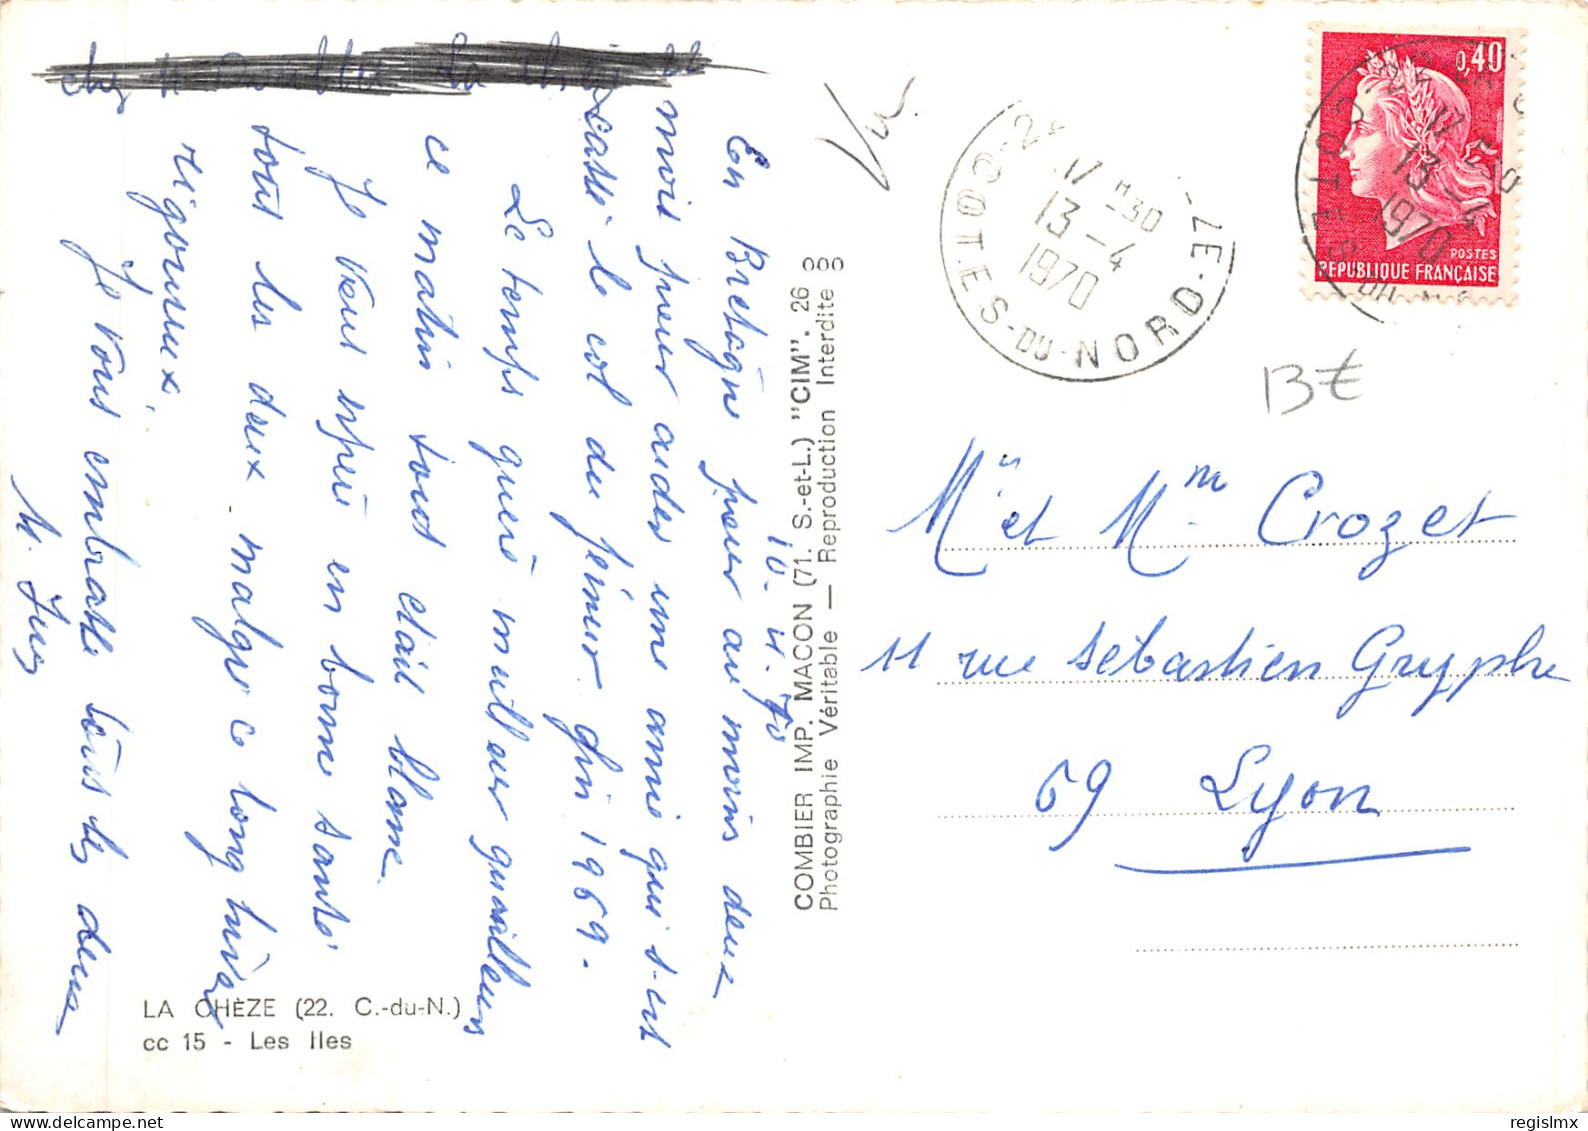 10-4-70
En Bretagne pour au moins deux
mois pour aider une amie qui s'est
cassé le col du fémur fin 1969.
Le temps guère meilleur qu'ailleurs
ce matin tout était blanc.
Je vous espère en bonne santé
tous les deux malgré ce long hiver
rigoureux.
Je vous embrasse tous les deux
chez
La
LA CHÈZE (22. C.-du-N.)
cc 15 - Les Iles
COMBIER IMP. MACON (71. S.-et-L.) "CIM". 26
Photographie Véritable — Reproduction Interdite
Vu
22
LE
17 H30
13-4
1970
COTES-DU-NORD
0,40
POSTES
REPUBLIQUE FRANÇAISE
22
17 H30
13-4
1970
COTES DU N
B€
Mr et Mme Crozet
11 rue Sébastien Gryphe
69 Lyon
regislmx